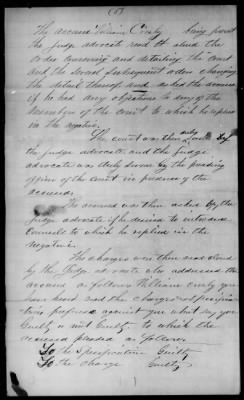 (5)
The accused William Croly being present
the judge advocate read aloud the
order convening and detailing the court
and the several subsequent orders changing
the detail thereof and asked the accused
if he had any objections to any of the
members of the court to which he replied
in the negative.
The court was then duly sworn by
the judge advocate and the judge
advocate was duly sworn by the presiding
officer of the court in presence of the
accused.
The accused was then asked by the
judge advocate if he desired to introduce
Counsel to which he replied in the
negative.
The charges were then read aloud
by the Judge advocate who addressed the
accused as follows William Croly you
have heard the charges & specifica
tions preferred against you what say you
Guilty or not Guilty to which the
accused pleaded as follows
To the Specification Guilty
To the Charge Guilty